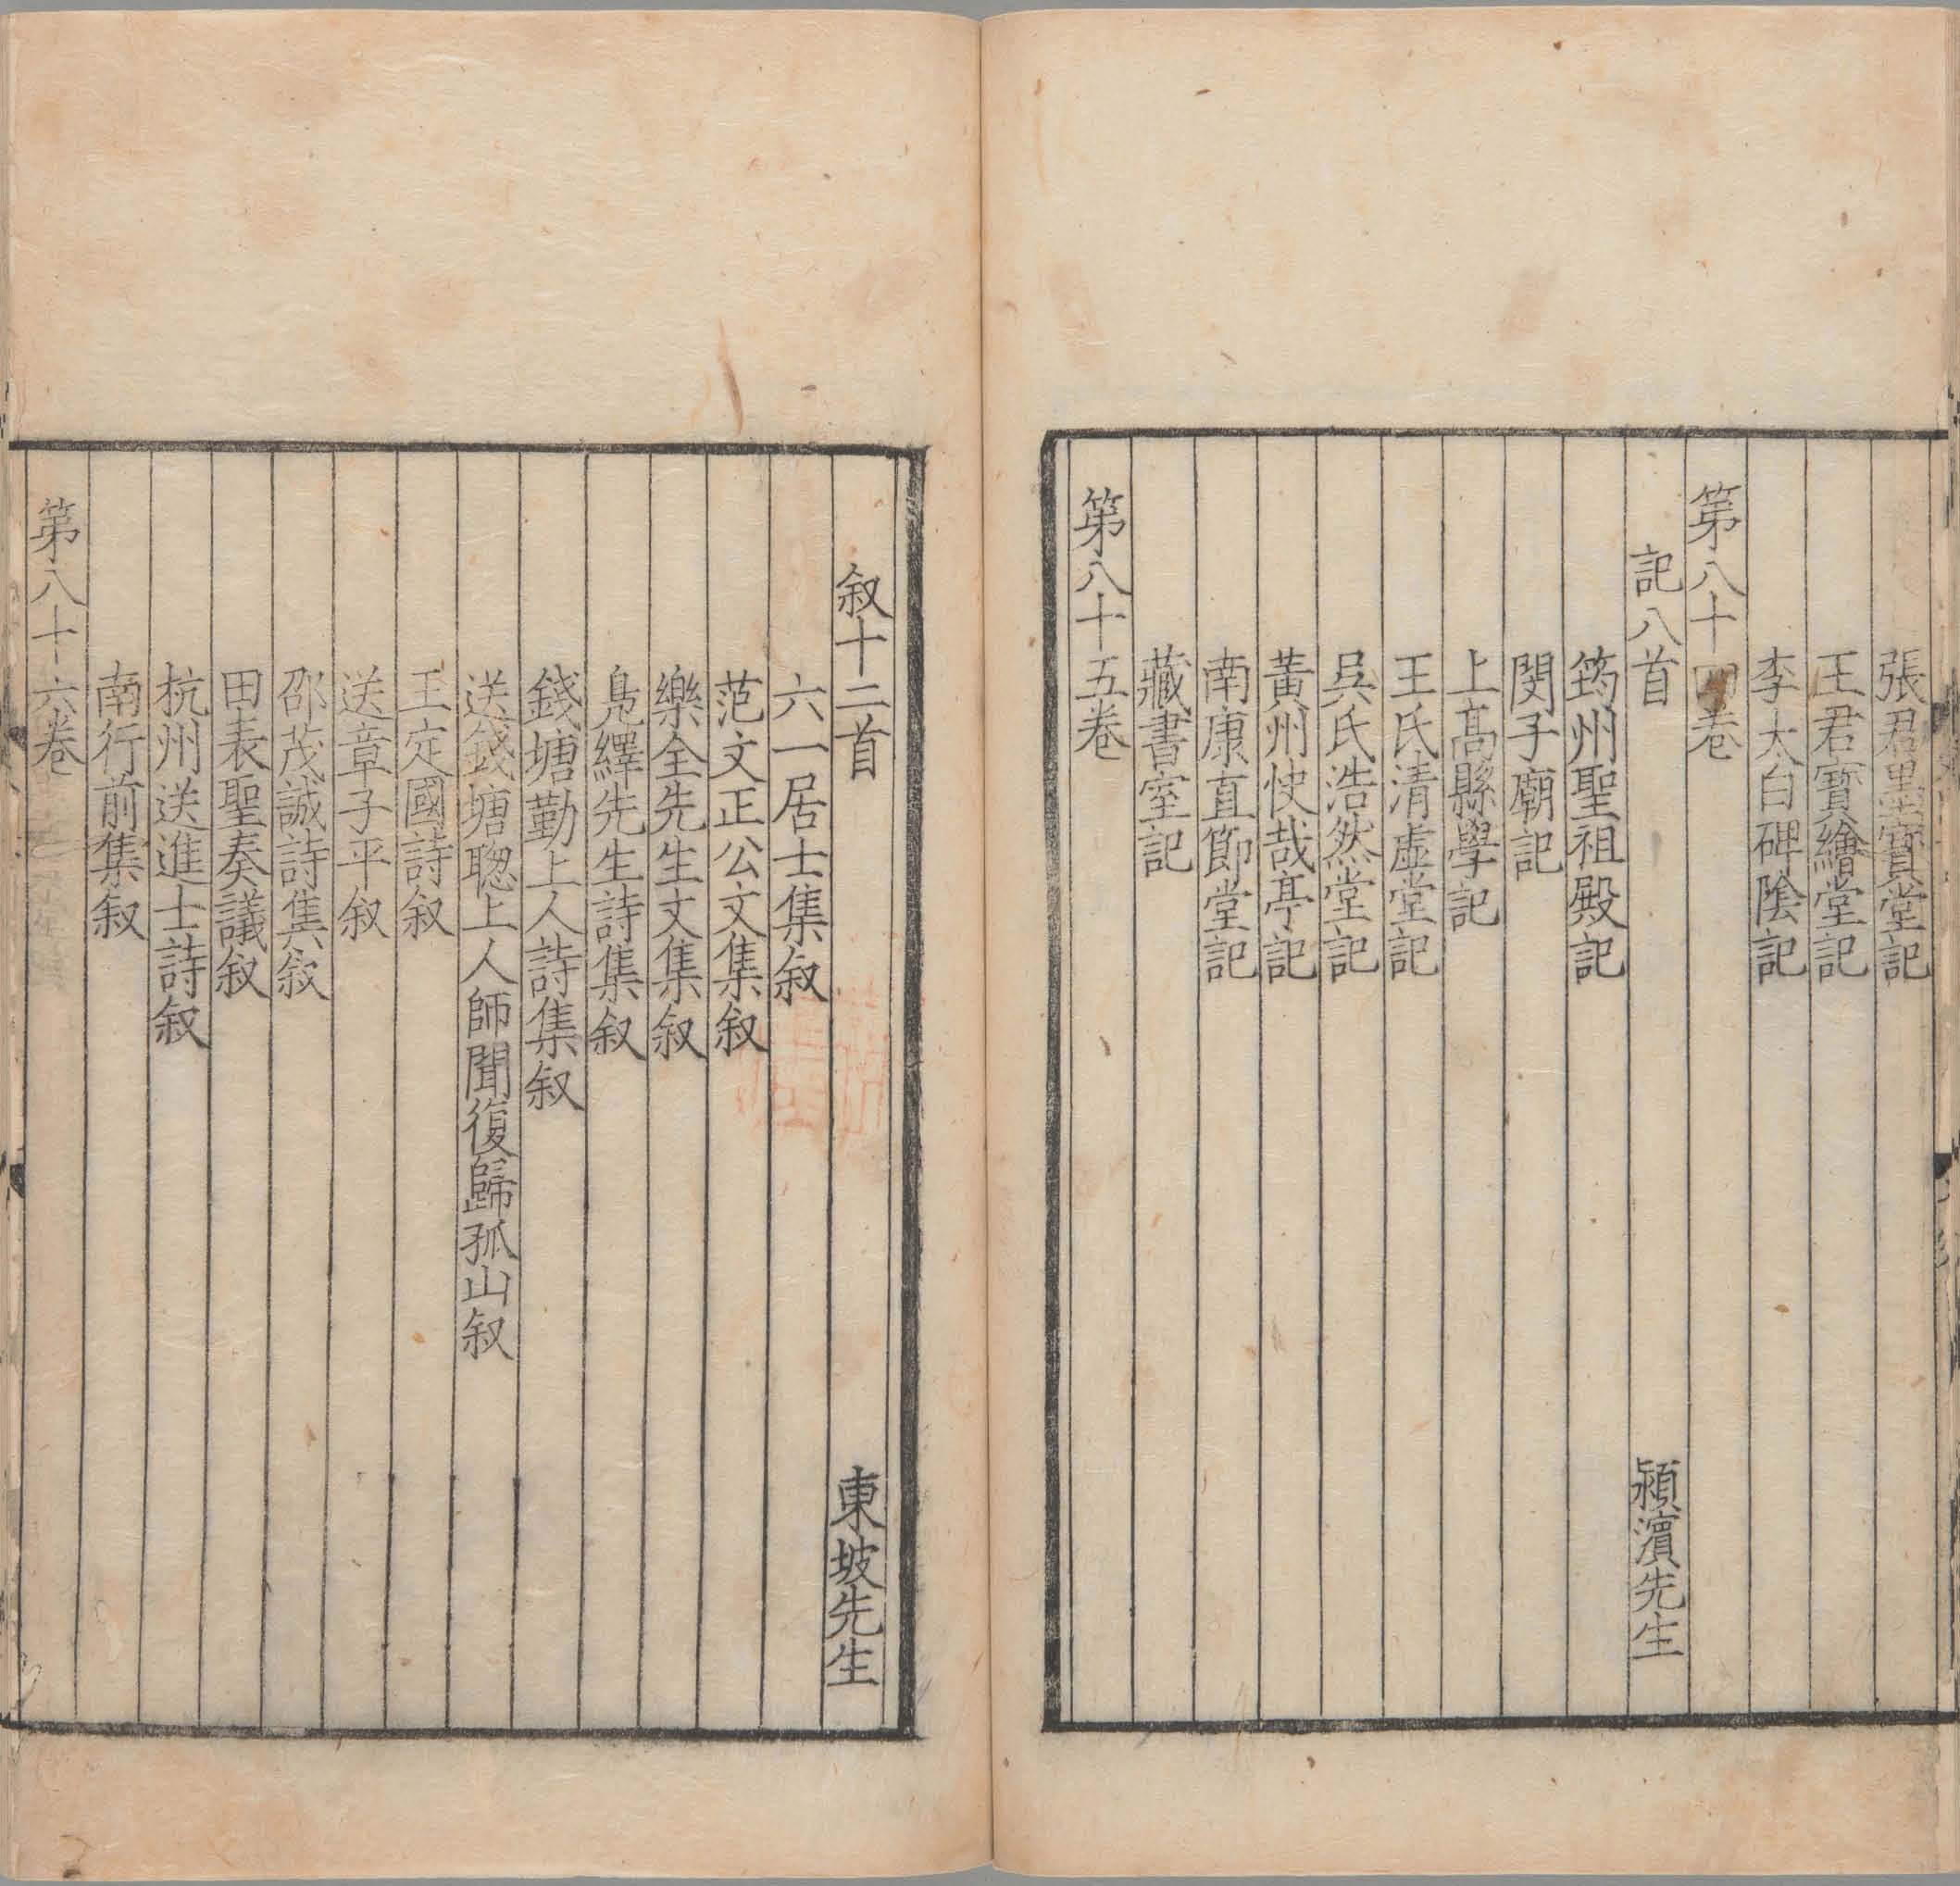 張君墨寶堂記
王君寶繪堂記
李太白碑陰記
第八十四卷
記八首 潁濱先生
筠州聖祖殿記
閔子廟記
上高縣學記
王氏清虛堂記
吳氏浩然堂記
黃州快哉亭記
南康直節堂記
藏書室記
第八十五卷
叙十二首 東坡先生
六一居士集叙
范文正公文集叙
樂全先生文集叙
鳧繹先生詩集叙
錢塘勤上人詩集叙
送錢塘聦上人師聞復歸孤山叙
王定國詩叙
送章子平叙
邵茂誠詩集叙
田表聖奏議叙
杭州送進士詩叙
南行前集叙
第八十六卷